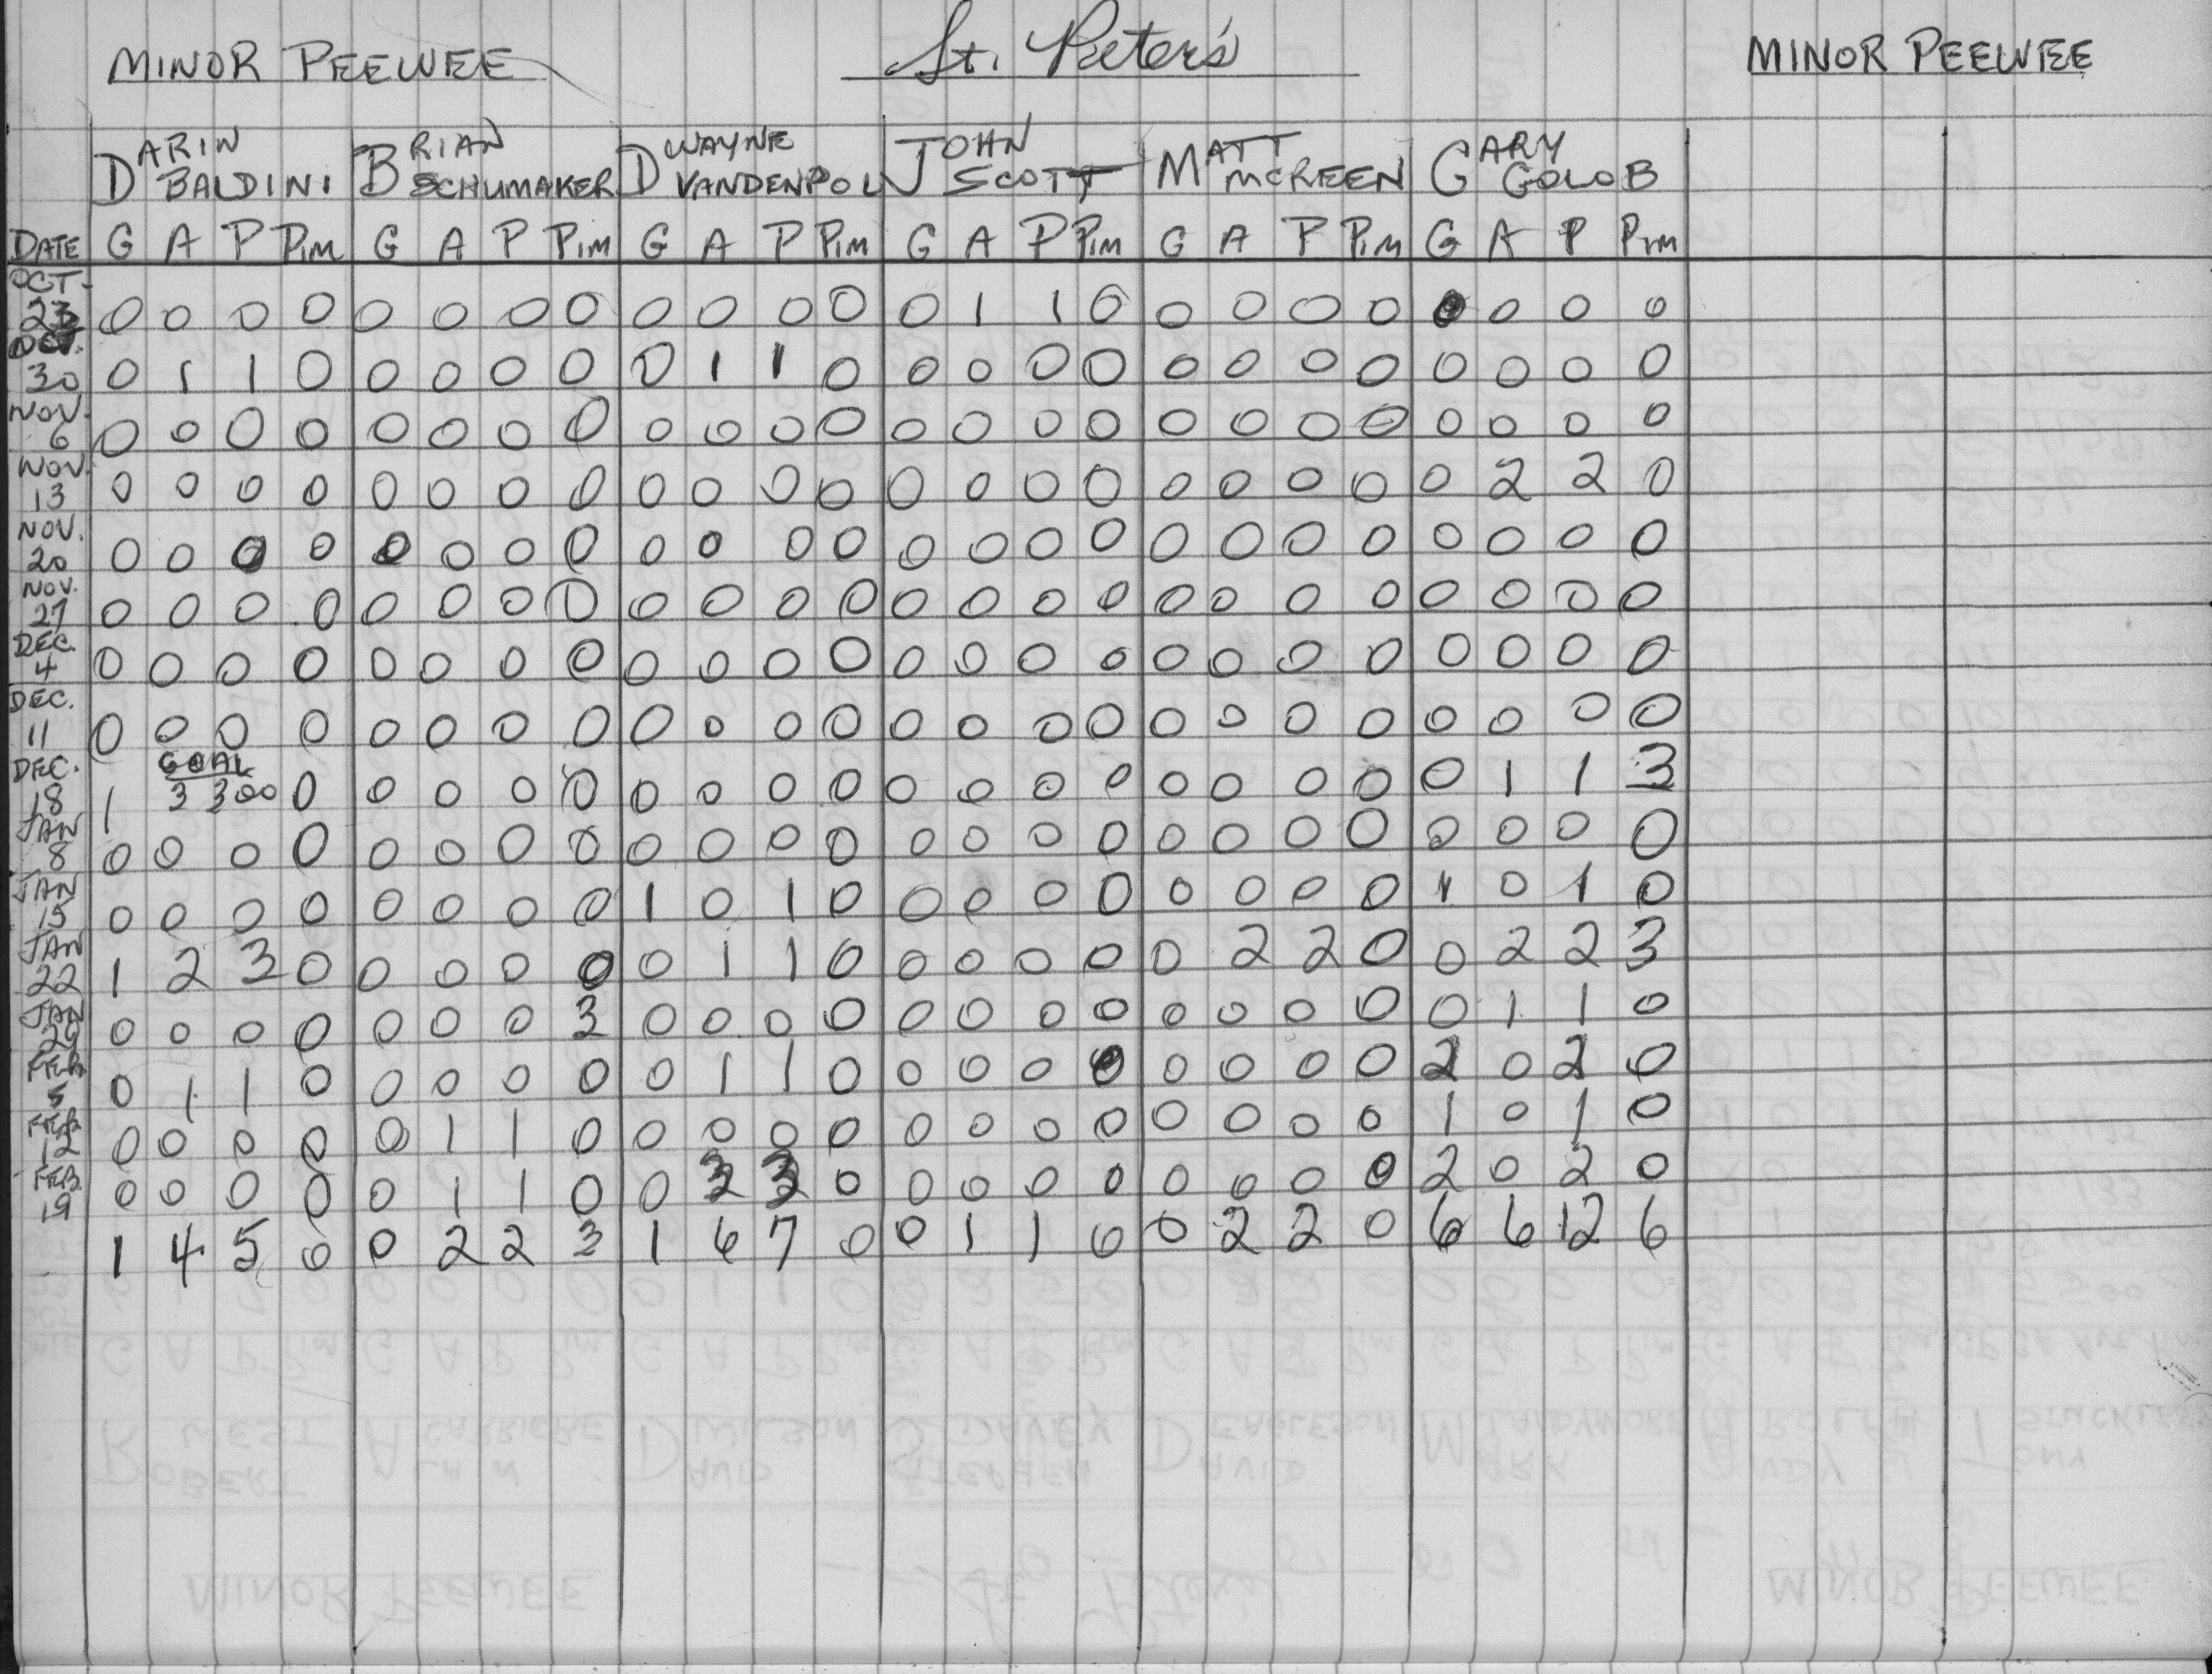 MINOR PEEWEE St. Peter's MINOR PEEWEE
DARIN BALDINI BRIAN SCHUMAKER DWAYNE VANDENPOL JOHN SCOTT MATT MCREEN GARY GOLOB
DATE G A P PIM G A P PIM G A P PIM G A P PIM G A P PIM G A P PIM
OCT. 23 0 0 0 0 0 0 0 0 0 0 0 0 0 1 1 0 0 0 0 0 0 0 0 0
OCT. 30 0 1 1 0 0 0 0 0 0 1 1 0 0 0 0 0 0 0 0 0 0 0 0 0
NOV. 6 0 0 0 0 0 0 0 0 0 0 0 0 0 0 0 0 0 0 0 0 0 0 0 0
NOV. 13 0 0 0 0 0 0 0 0 0 0 0 0 0 0 0 0 0 0 0 0 0 2 2 0
NOV. 20 0 0 0 0 0 0 0 0 0 0 0 0 0 0 0 0 0 0 0 0 0 0 0 0
NOV. 27 0 0 0 0 0 0 0 0 0 0 0 0 0 0 0 0 0 0 0 0 0 0 0 0
DEC. 4 0 0 0 0 0 0 0 0 0 0 0 0 0 0 0 0 0 0 0 0 0 0 0 0
DEC. 11 0 0 0 0 0 0 0 0 0 0 0 0 0 0 0 0 0 0 0 0 0 0 0 0
DEC. 18 1 GOAL 3 3 00 0 0 0 0 0 0 0 0 0 0 0 0 0 0 0 0 0 0 1 1 3
JAN 8 0 0 0 0 0 0 0 0 0 0 0 0 0 0 0 0 0 0 0 0 0 0 0 0
JAN 15 0 0 0 0 0 0 0 0 1 0 1 0 0 0 0 0 0 0 0 0 1 0 1 0
JAN 22 1 2 3 0 0 0 0 0 0 1 1 0 0 0 0 0 0 2 2 0 0 2 2 3
JAN 29 0 0 0 0 0 0 0 3 0 0 0 0 0 0 0 0 0 0 0 0 0 1 1 0
FEB 5 0 1 1 0 0 0 0 0 0 1 1 0 0 0 0 0 0 0 0 0 2 0 2 0
FEB 12 0 0 0 0 0 1 1 0 0 0 0 0 0 0 0 0 0 0 0 0 1 0 1 0
FEB. 19 0 0 0 0 0 1 1 0 0 3 3 0 0 0 0 0 0 0 0 0 2 0 2 0
1 4 5 0 0 2 2 3 1 6 7 0 0 1 1 0 0 2 2 0 6 6 12 6